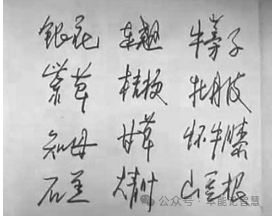 银花 连翘 牛蒡子
紫草 桔梗 牡丹皮
知母 甘草 怀牛膝
石 青叶 山豆根
公众号·